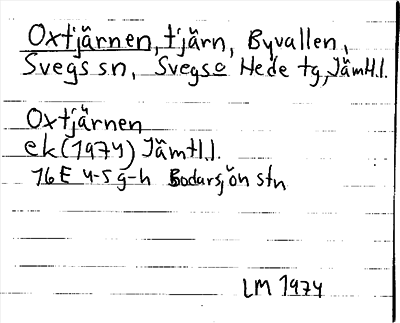 Oxtjärnen, tjärn, Byvallen,
Svegs sn, Svegs o Hede tg, Jämtl.l.
Oxtjärnen
ek (1974) Jämtl.l.
16E 4-5 g-h Bodarsjön stn
LM 1974